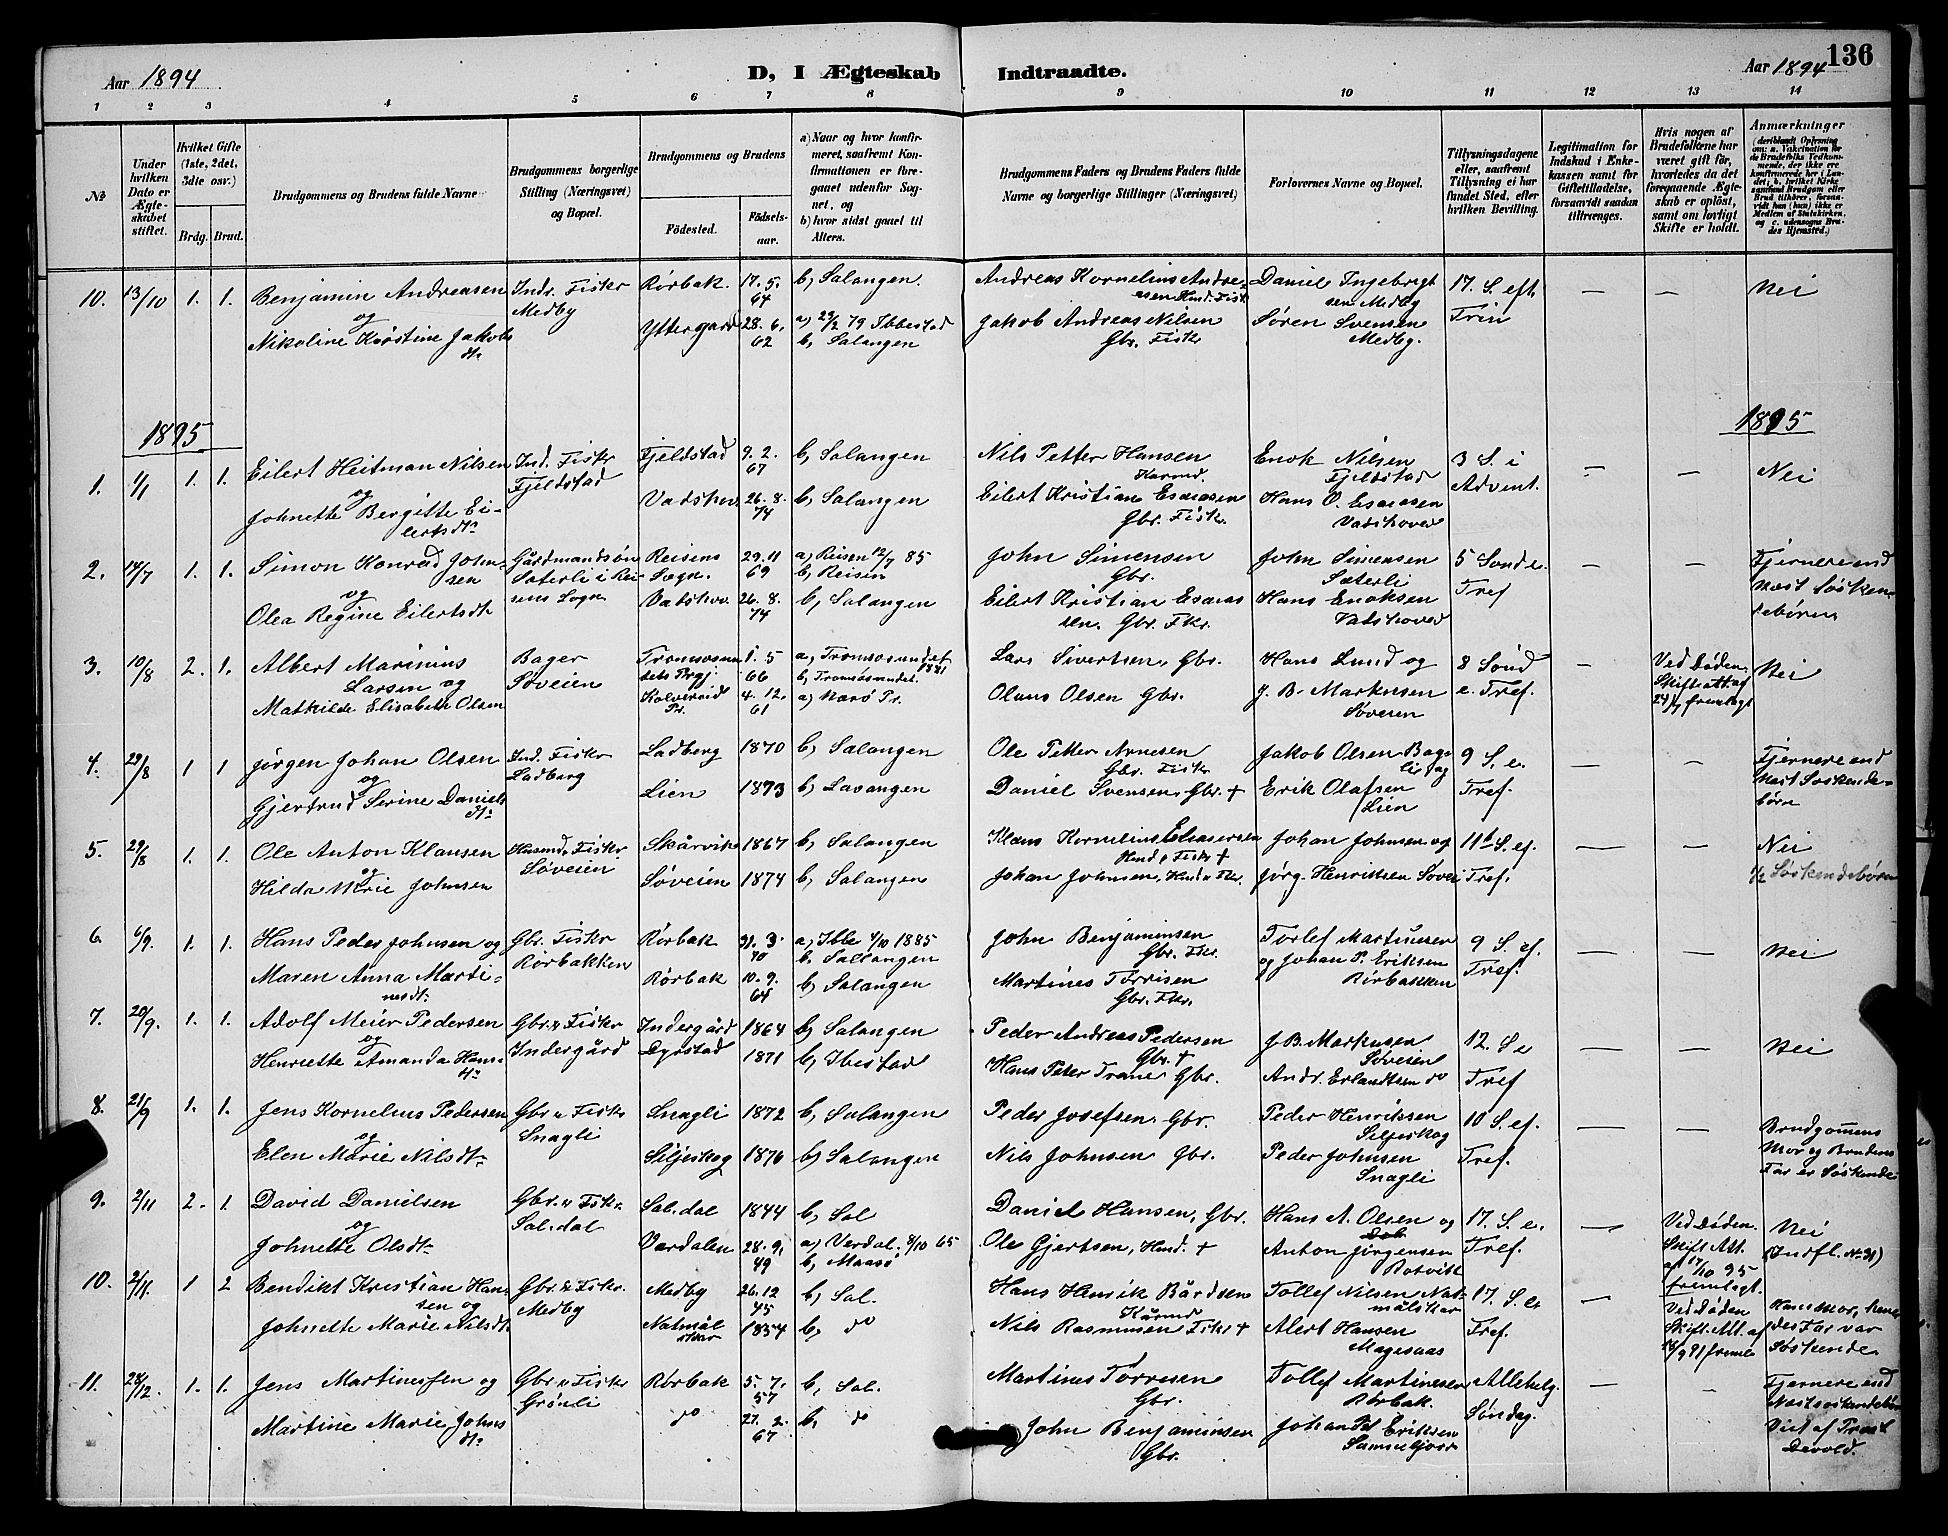 136
Aar 1894
D, I Ægteskab Indtraadte.
Aar 1894
1 2 3 4 5 6 7 8 9 10 11 12 13 14
№
Under hvilken Dato er Ægteskabet stiftet.
Hvilket Gifte (1ste, 2det, 3die osv.)
Brdg. Brud.
Brudgommens og Brudens fulde Navne
Brudgommens borgerlige Stilling (Næringsvei) og Bopæl.
Brudgommens og Brudens
Födested. Födselsaar.
a) Naar og hvor konfirmeret, saafremt Konfirmationen er foregaaet udenfor Sognet, og
b) hvor sidst gaaet til Alters.
Brudgommens Faders og Brudens Faders fulde Navne og borgerlige Stillinger (Næringsvei)
Forlovernes Navne og Bopæl.
Tillysningsdagene eller, saafremt Tillysning ei har fundet Sted, efter hvilken Bevilling.
Legitimation for Indskud i Enkekassen samt for Giftetilladelse, forsaavidt saadan tiltrænges.
Hvis nogen af Brudefolkene har været gift för, hvorledes da det foregaaende Ægteskab er oplöst, samt om lovligt Skifte er holdt.
Anmærkninger
10. 13/10 1. 1. Benjamin Andreasen og Nikoline Kristine Jakobsdt.
Indr. Fisker Medby
Rørbak. 17. 5. 64 b, Salangen.
Yttergard 28. 6. 62 a) 29/2 79 Ibbestad b, Salangen
Andreas Kornelius Andreasen Hmd. Fisk
Jakob Andreas Nilsen Gbr. Fiskr
Daniel Ingebrigtsen Medby
Søren Svensen Medby.
17. S. eft Trin — — Nei
1895 1895
1. 1/1 1. 1. Eilert Heitman Nilsen og Johnette Bergitte Eilertsdt.
Ind. Fiskr Fjeldstad
Fjeldstad 9. 2. 67 b, Salangen
Vadshov. 26. 8. 74 b, Salangen
Nils Petter Hansen
Eilert Kristian Esaiasen Gbr. Fiskr.
Enok Nilsen Fjeldstad
Hans O. Esaiasen Vatshoved
3 S. i Advent. — — Nei
2. 14/7 1. 1. Simon Konrad Johnsen og Olea Regine Eilertsdt
Gårdmandsön Sæterli i Reisens Sogn
Reisens Sogn. 29. 11 69 a) Reisen 12/7 85 b, Reisen
Vatshov. 26. 8. 74 b, Salangen
John Simensen Gbr.
Eilert Kristian Esaiassen. Gbr. Fkr.
John Simensen Sæterli
Hans Enoksen Vatshoved
5 Sond e. Tref
Fjernere end Næst Søskendebörn
3. 10/8 2. 1. Albert Marinius Larsen og Mathilde Elisabeth Olsen
Bager Søveien
Tromsøsundets Prgj. 1. 5 66 a, Tromsøsundet 1881 b, Tromsösundet.
Kolvereid Pr. 4. 12. 61 a) Nærö Pr.
Lars Sivertsen, Gbr.
Olaus Olsen Gbr.
Hans Lund og J. B. Markusen Søveien
8 Sönd e. Tref. —
Ved Døden. Skifteatt. af 24/7 fremlagt Nei
4. 29/8 1 1 Jørgen Johan Olsen og Gjertrud Serine Danielsdt.
Ind. Fiskr Ladberg
Ladberg 1870 b, Salangen
Lien 1873 b, Lavangen
Ole Petter Arnesen Gbr. Fiskr
Daniel Svensen, Gbr. +
Jakob Olsen og
Erik Olafsen Lien
9 S. e. Tref. — —
Fjernere end Næst Søskendebörn
5. 29/8 1. 1. Ole Anton Klausen og Hilda Marie Johnsen
Husmd. Fiskr. Søveien
Skårvik 1867 b, Salangen
Søveien 1874 b, Salangen
Klaus Kornelius Eliasersen Hmd, Fiskr +
Johan Johnsen, Hmd & Fkr.
Johan Johnsen og Jørg. Henriksen Søvei
11te S. ef. Tref. — — Nei
1/2 Søskendebörn
6. 6/9. 1. 1. Hans Peder Johnsen og Maren Anna Martinesdt.
Gbr. Fiskr Rörbakken
Rörbak 31. 3 70 a, Ibbe 4/10 1885 b. Sallangen
Rörbak 10. 9. 64 b, Salangen
John Benjaminsen Gbr. Fkr.
Martines Torrisen Gbr. Fkr.
Torlef Martinesen og Johan P. Eriksen Rörbakken
9 S. ef. Tref. — — Nei
7. 20/9. 1. 1. Adolf Meier Pedersen og Henriette Amanda Hansdt.
Gbr. & Fiskr Indergård
Indergård 1864 b, Salangen
Dyrstad 1871 b, Ibestad
Peder Andreas Pedersen Gbr. +
Hans Peter Trane Gbr.
J. B. Markusen Søveien
Andr. Erlandtsen do
12. S e Tref — — Nei
8. 21/9 1. 1. Jens Kornelius Pedersen og Elen Marie Nilsdt.
Gbr & Fiskr Snagli
Snagli 1872 b, Salangen
Siljeskog 1876 b) Salangen
Peder Josefsen. Gbr.
Nils Johnsen Gbr.
Peder Henriksen Siljeskog
Peder Johnsen Snagli
10 S. ef. Tref. — —
Brudgomens Mor og Brudens Far er Søskende
9. 2/11 2. 1. David Danielsen og Johnette Olsdt.
Gbr. & Fiskr. Sal. dal
Sal. dal 1844 b, Sal
Værdalen 28. 9. 49 a) Verdal. 8/10 65 b, Maasö
Daniel Hansen, Gbr.
Ole Gjertsen, Hmd. +
Hans A. Olsen og
Anton Jørgensen Rotvik
17. S. e. Tref. —
Ved Døden. Skift. Att. af 17/10 95 fremlagt. Nei
(Indfl. № 31)
10. 2/11. 1 2 Bendikt Kristian Hansen og Johnette Marie Nilsdt.
Gbr. & Fiskr. Medby
Medby 26. 12 45 b, Sal.
Natmålskar 1854 b, do
Hans Henrik Bårdsen
Nils Rasmusen Fiskr +
Tollef Nilsen Natmålskar
Alert Hansen Magesaas
17. S. e. Tref. —
Ved Døden Skift. Att. af 18/9 91 freml.
Hans Mor, hendes Far var Søskende
11. 28/12. 1. 1. Jens Martinessen og Martine Marie Johnsdt.
Gbr. & Fiskr Grönli
Rörbak 5. 7. 57 b, Sal.
do 27. 2. 67 b, do
Martines Torresen Gbr.
John Benjaminsen Gbr.
Tollef Martinesen Rörbak.
Johan Pet Eriksen
Allehelg. Söndag. — —
Fjernere end Næstsøskendebörn
Viet af Provst Devold.